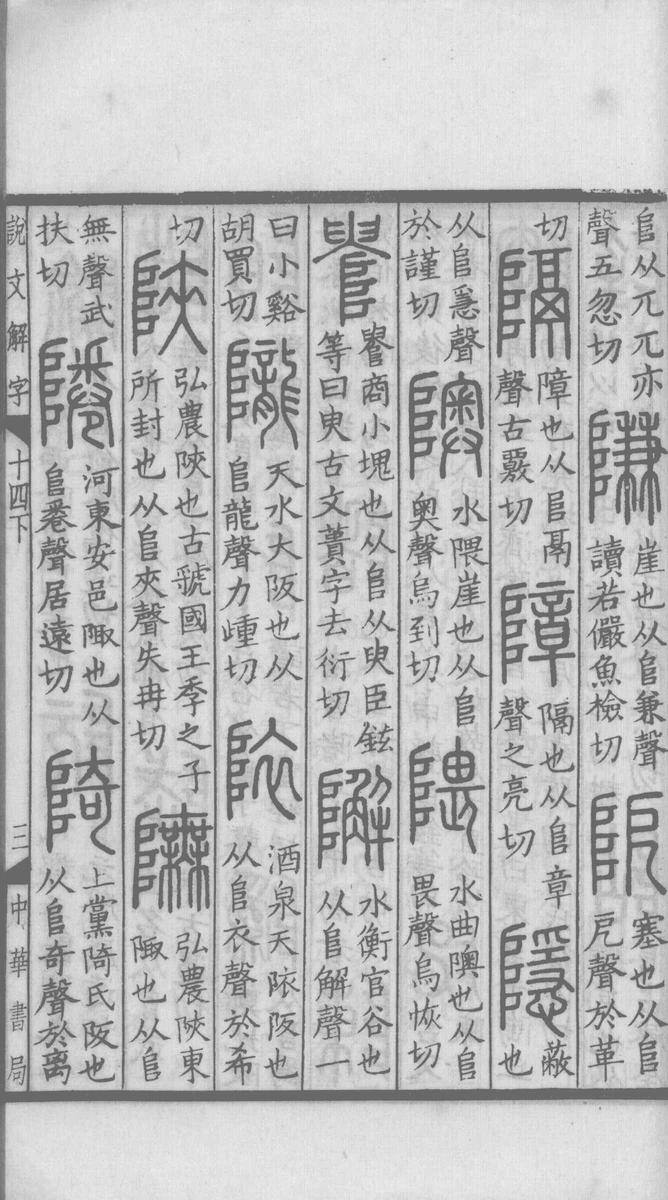 𨸏从兀兀亦聲五忽切隒崖也从𨸏兼聲讀若儼魚檢切阸塞也从𨸏戹聲於革
切隔障也从𨸏鬲聲古覈切障隔也从𨸏章聲之亮切隱蔽也
从𨸏㥯聲於謹切隩水隈崖也从𨸏奧聲烏到切隈水曲隩也从𨸏畏聲烏恢切
𠳋𠳋商小塊也从𨸏从㬰臣鉉等曰㬰古文蕢字去衍切𨼬水衡官谷也从𨸏解聲一
曰小谿胡買切隴天水大阪也从𨸏龍聲力歱切䧇酒泉天䧇阪也从𨸏衣聲於希
切陝弘農陝也古虢國王季之子所封也从𨸏夾聲失冉切𨼊弘農陝東陬也从𨸏
無聲武扶切隌河東安邑陬也从𨸏卷聲居遠切陭上黨陭氏阪也从𨸏奇聲於离
說文解字 十四下 三 中華書局